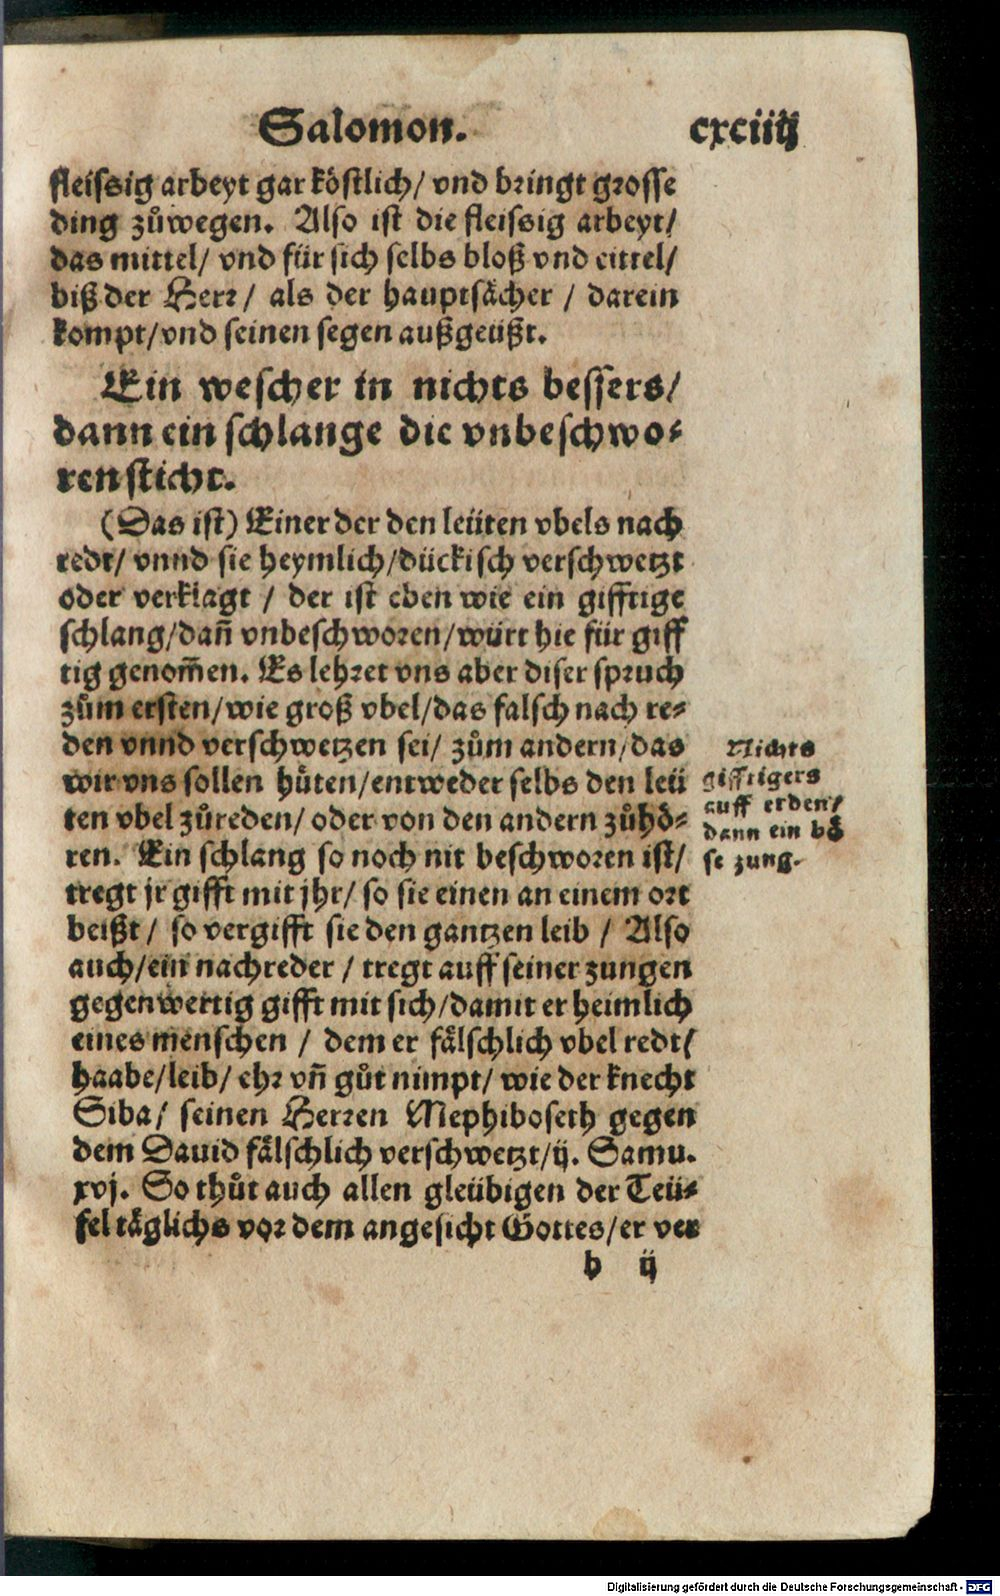 Salomon. cxciiij
fleissig arbeyt gar köstlich/ vnd bringt grosse
ding zůwegen. Also ist die fleissig arbeyt/
das mittel/ vnd für sich selbs bloß vnd eittel/
biß der Herr/ als der hauptsächer / darein
kompt/vnd seinen segen außgeüßt.
Ein wescher in nichts bessers/
dann ein schlange die vnbeschwo⸗
ren sticht.
(Das ist) Einer der den leüten vbels nach
redt/ vnnd sie heymlich/dückisch verschwetzt
oder verklagt / der ist eben wie ein gifftige
schlang/dañ vnbeschworen/würt hie für giff
tig genom̃en. Es lehret vns aber diser spruch
zům ersten/wie groß vbel/das falsch nach re⸗
den vnnd verschwetzen sei/ zům andern/das
wir vns sollen hůten/entweder selbs den leü
ten vbel zůreden/ oder von den andern zůhö⸗
ren. Ein schlang so noch nit beschworen ist/
tregt jr gifft mit jhr/ so sie einen an einem ort
beißt/ so vergifft sie den gantzen leib / Also
auch/ein nachreder / tregt auff seiner zungen
gegenwertig gifft mit sich/damit er heimlich
eines menschen / dem er fälschlich vbel redt/
haabe/leib/ ehr vñ gůt nimpt/ wie der knecht
Siba/ seinen Herren Mephiboseth gegen
dem Dauid fälschlich verschwetzt/ij. Samu.
xvj. So thůt auch allen gleübigen der Teü⸗
fel täglichs vor dem angesicht Gottes/er ver
h ij
Nichts
gifftigers
auff erden/
dann ein bö
se zung.
Digitalisierung gefördert durch die Deutsche Forschungsgemeinschaft - DFG